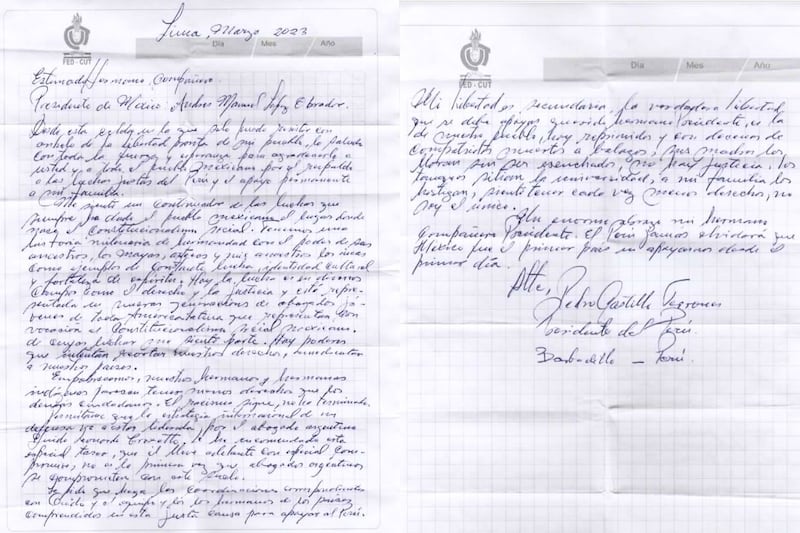 FED - CUT
Día Mes Año
Lima, Marzo 2023
Estimado Hermano, Compañero
Presidente de México, Andrés Manuel López Obrador.
Desde esta celda en la que solo puede resistir con
anhelo de la libertad pronta de mi pueblo, lo saludo
con toda la fuerza y esperanza para agradecerle a
usted y a todo el pueblo mexicano por el respaldo
a las luchas justas del Perú y el apoyo permanente
a mi familia.
Me siento un continuador de las luchas que
siempre ha dado el pueblo mexicano, el lugar donde
nace el Constitucionalismo Social. Tenemos una
historia milenaria de hermandad con el poder de sus
ancestros, los mayas, aztecas y mis ancestros los incas
como ejemplos de constante lucha, identidad cultural
y fortaleza de espíritu. Hoy la lucha es en diversos
campos como el derecho y la justicia y está repre-
sentada en nuevas generaciones de abogados jó-
venes de toda América Latina que representan con
vocación el Constitucionalismo social mexicano.
de cuyas luchas me siento parte. Hoy hay poderes
que intentan recortar nuestros derechos,
a nuestros países.
Empobrecemos, nuestros hermanos y hermanas
indígenas parecen tener menos derechos que los
demás ciudadanos. El racismo sigue, no ha terminado.
que la estrategia internacional de mi
defensa va a estar liderada, por el abogado argentino
Guido Leonardo Croxatto. A he encomendado esta
especial tarea, que él lleva adelante con especial com-
promiso, no es la primera vez que abogados argentinos
se comprometen con este pueblo.
Le pido que haga las coordinaciones correspondientes
con Guido y el equipo y los hermanos de los países
comprendidos en esta justa causa para apoyar al Perú.
FED - CUT
Día Mes Año
Mi libertad es secundaria, la verdadera libertad
que se debe apoyar querido hermano Presidente, es la
de nuestro pueblo, hoy reprimidos y con decenas de
compatriotas muertos a balazos, sus madres los
lloran sin ser escuchados, no hay justicia, los
tanques sitian la universidad, a mi familia los
hostigan, siente tener cada vez menos derechos, no
soy el único.
Un enorme abrazo mi hermano
Compañero Presidente. El Perú jamás olvidará que
México fue el primer país en apoyarnos desde el
primer día.
Atte,
Pedro Castillo Terrones
Presidente del Perú.
Barbadillo - Perú.